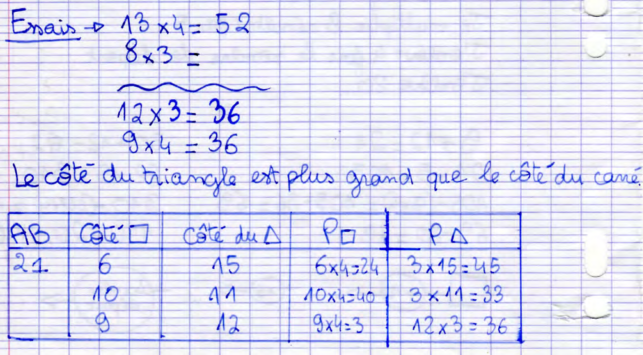 Essais → 13 x 4 = 52
8 x 3 =
12 x 3 = 36
9 x 4 = 36
Le côté du triangle est plus grand que le côté du carré.
AB Côté □ côté du Δ P□ PΔ
21. 6 15 6x4=24 3x15=45
10 11 10x4=40 3x11=33
9 12 9x4=3 12x3=36